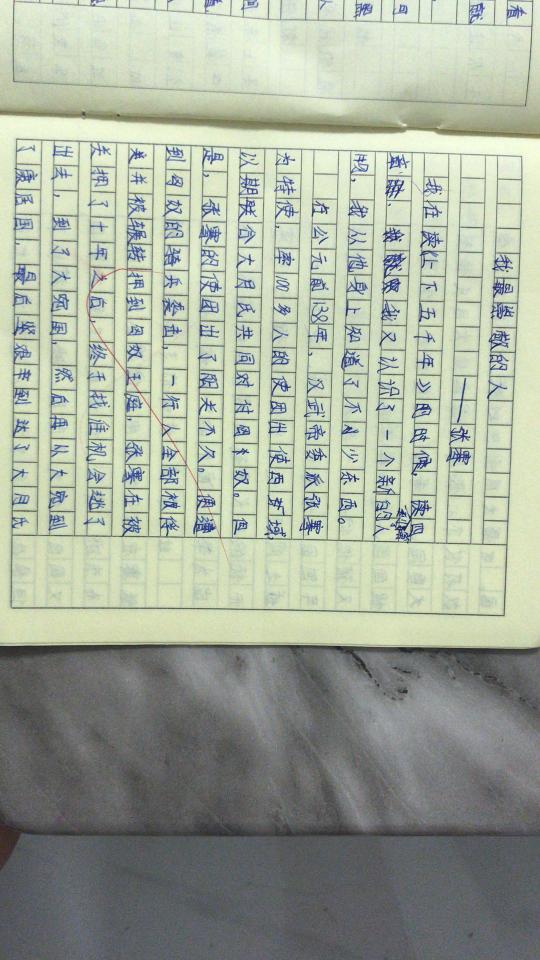 我最崇敬的人
——张骞
我在读《上下五千年》的时候,读
到张骞,我又认识了一个新的人
物,我从他身上知道了不少东西。
在公元前138年,汉武帝委派张骞
为特使,率100多人的使团出使西域,
以期联合大月氏共同对付匈奴。但
是,张骞的使团出了阳关不久。遭
到匈奴的骑兵袭击,一行人全部被俘
并被辗转押到匈奴王庭,张骞在被
关押了十年之后,终于找准机会逃了
出去,到了大宛国,然后再从大宛到
了康居国,最后坚艰辛到达了大月氏